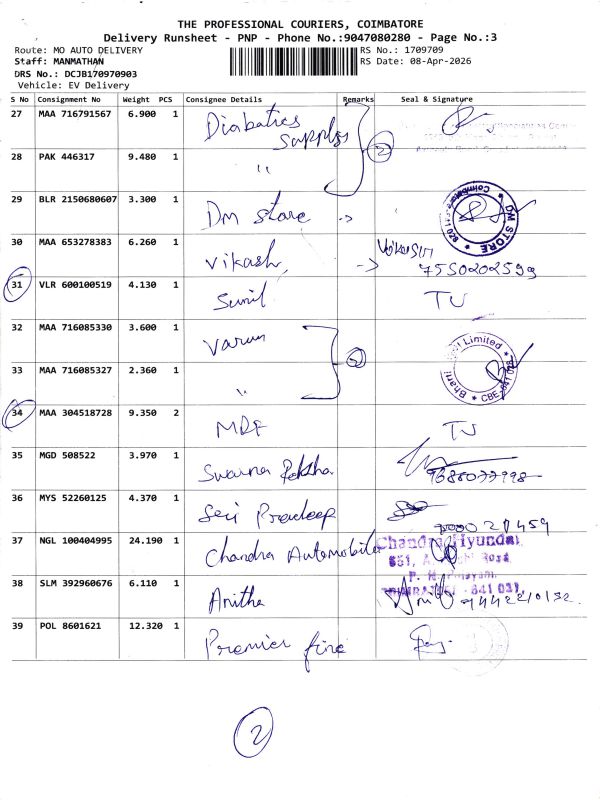 THE PROFESSIONAL COURIERS, COIMBATORE
Delivery Runsheet - PNP - Phone No.:9047080280 - Page No.:3
Route: MO AUTO DELIVERY
RS No.: 1709709
Staff: MANMATHAN
RS Date: 08-Apr-2026
DRS No.: DCJB170970903
Vehicle: EV Delivery
S No Consignment No Weight PCS Consignee Details Remarks Seal & Signature
27 MAA 716791567 6.900 1 Diabatics
28 PAK 446317 9.480 1 "
29 BLR 2150680607 3.300 1 DM store DM STORE
30 MAA 653278383 6.260 1 Vikash
7550202599
31 VLR 600100519 4.130 1 Sunil TJ
32 MAA 716085330 3.600 1 Varun Limited
33 MAA 716085327 2.360 1 " Bharti
34 MAA 304518728 9.350 2 TJ
35 MGD 508522 3.970 1 Swarna
36 MYS 52260125 4.370 1 Sri Pradeep
37 NGL 100404995 24.190 1 Chandra Automobile Chandra Hyundai
38 SLM 392960676 6.110 1 Anitha
39 POL 8601621 12.320 1 Premier fine
2